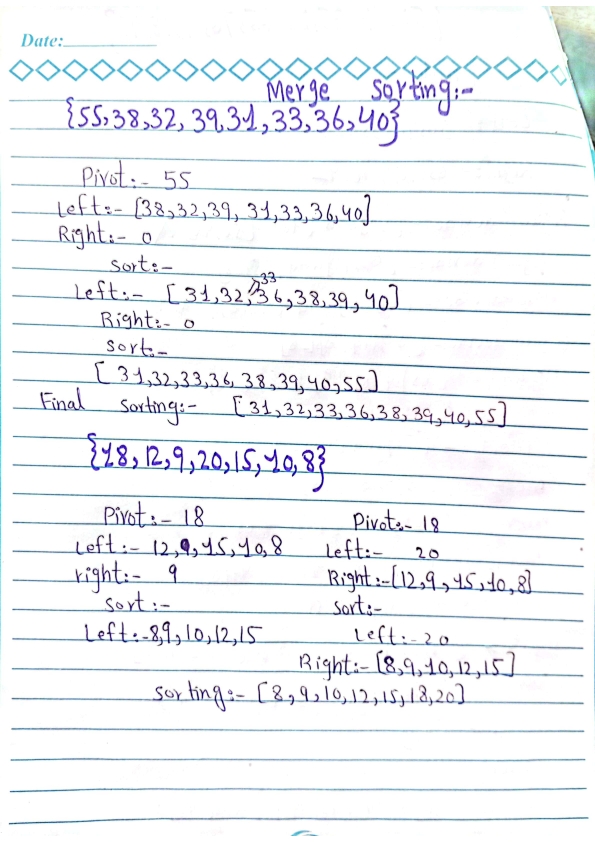 Date:
Merge Sorting:-
{55,38,32, 39,31,33,36,40}
Pivot:- 55
Left:- [38,32,39, 31,33,36,40]
Right:- 0
sort:-
33
Left:- [31,32,36,38,39,40]
Right:- 0
sort:-
[31,32,33,36, 38,39,40,55]
Final sorting:- [31,32,33,36,38,39,40,55]
{18,12,9,20,15,10,8}
Pivot:- 18 Pivot:- 18
Left:- 12,9,15,10,8 Left:- 20
right:- 9 Right:-[12,9,15,10,8]
Sort:- sort:-
Left:-8,9,10,12,15 Left:-20
Right:- [8,9,10,12,15]
sorting:- [8,9,10,12,15,18,20]